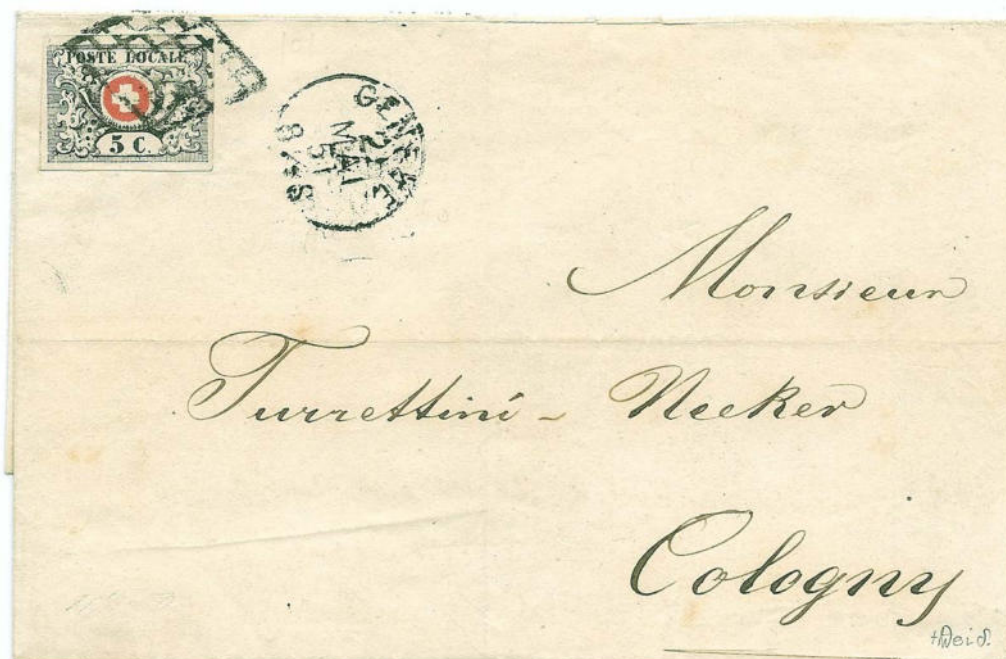 POSTE LOCALE
5 C.
GENEVE
2
MAI
51
8 S
Monsieur
Turrettini - Necker
Cologny